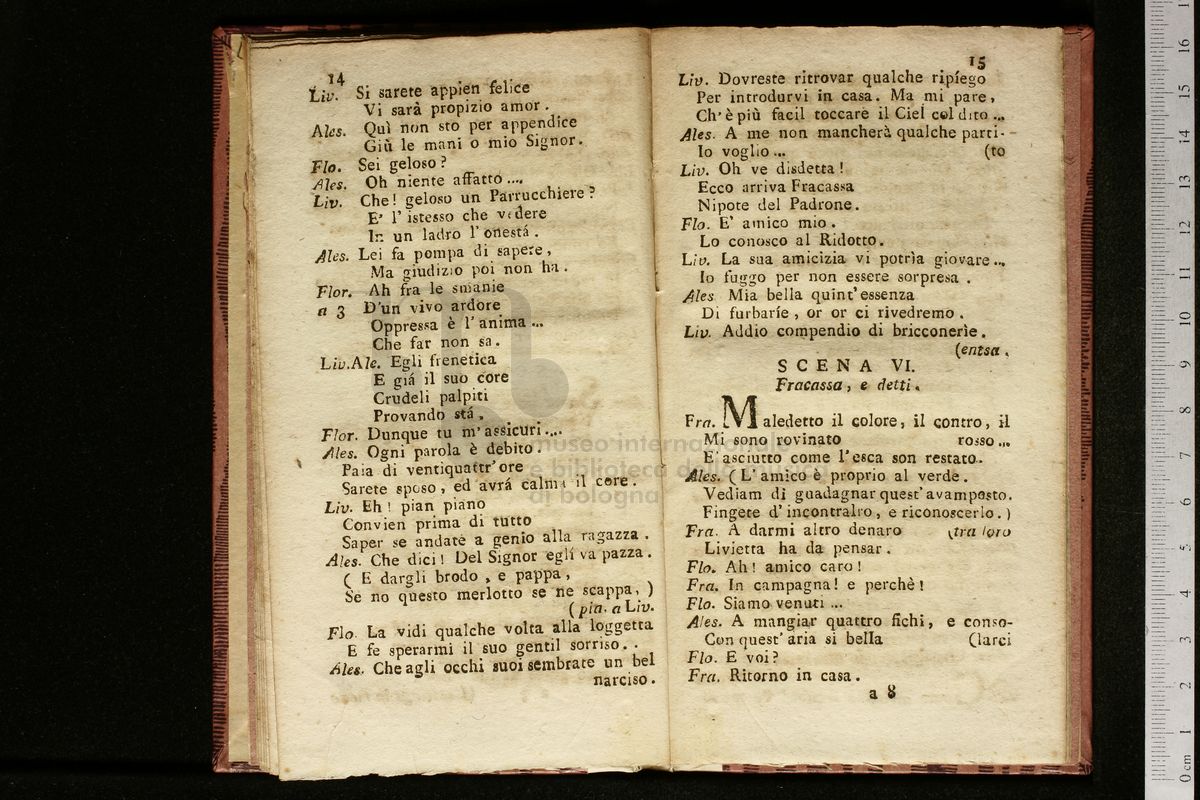 14
Liv. Si sarete appien felice
Vi sarà propizio amor.
Ales. Quì non sto per appendice
Giù le mani o mio Signor.
Flo. Sei geloso?
Ales. Oh niente affatto ....
Liv. Che! geloso un Parrucchiere?
E' l'istesso che vedere
In un ladro l'onestá.
Ales. Lei fa pompa di sapere,
Ma giudizio poi non ha.
Flor. Ah fra le smanie
a 3 D'un vivo ardore
Oppressa è l'anima ...
Che far non sa.
Liv.Ale. Egli frenetica
E giá il suo core
Crudeli palpiti
Provando stá.
Flor. Dunque tu m'assicuri....
Ales. Ogni parola è debito.
Paia di ventiquattr'ore
Sarete sposo, ed avrá calma il core.
Liv. Eh! pian piano
Convien prima di tutto
Saper se andate a genio alla ragazza.
Ales. Che dici! Del Signor egli va pazza.
( E dargli brodo, e pappa,
Se no questo merlotto se ne scappa, )
(pia. a Liv.
Flo. La vidi qualche volta alla loggetta
E fe sperarmi il suo gentil sorriso..
Ales. Che agli occhi suoi sembrate un bel
narciso.
15
Liv. Dovreste ritrovar qualche ripiego
Per introdurvi in casa. Ma mi pare,
Ch'è più facil toccare il Ciel col dito ...
Ales. A me non mancherà qualche parti-
Io voglio ... (to
Liv. Oh ve disdetta!
Ecco arriva Fracassa
Nipote del Padrone.
Flo. E' amico mio.
Lo conosco al Ridotto.
Liv. La sua amicizia vi potrìa giovare...
Io fuggo per non essere sorpresa.
Ales Mia bella quint'essenza
Di furbarìe, or or ci rivedremo.
Liv. Addio compendio di bricconerìe.
(entsa.
SCENA VI.
Fracassa, e detti.
Fra. Maledetto il colore, il contro, il
Mi sono rovinato rosso...
E'asciutto come l'esca son restato.
Ales. ( L'amico è proprio al verde.
Vediam di guadagnar quest'avamposto.
Fingete d'incontralro, e riconoscerlo.)
Fra. A darmi altro denaro (tra loro
Livietta ha da pensar.
Flo. Ah! amico caro!
Fra. In campagna! e perchè!
Flo. Siamo venuti ...
Ales. A mangiar quattro fichi, e conso-
Con quest'aria si bella (larci
Flo. E voi?
Fra. Ritorno in casa.
a 8
museo internazionale
e biblioteca della musica
di bologna
0 cm 1 2 3 4 5 6 7 8 9 10 11 12 13 14 15 16